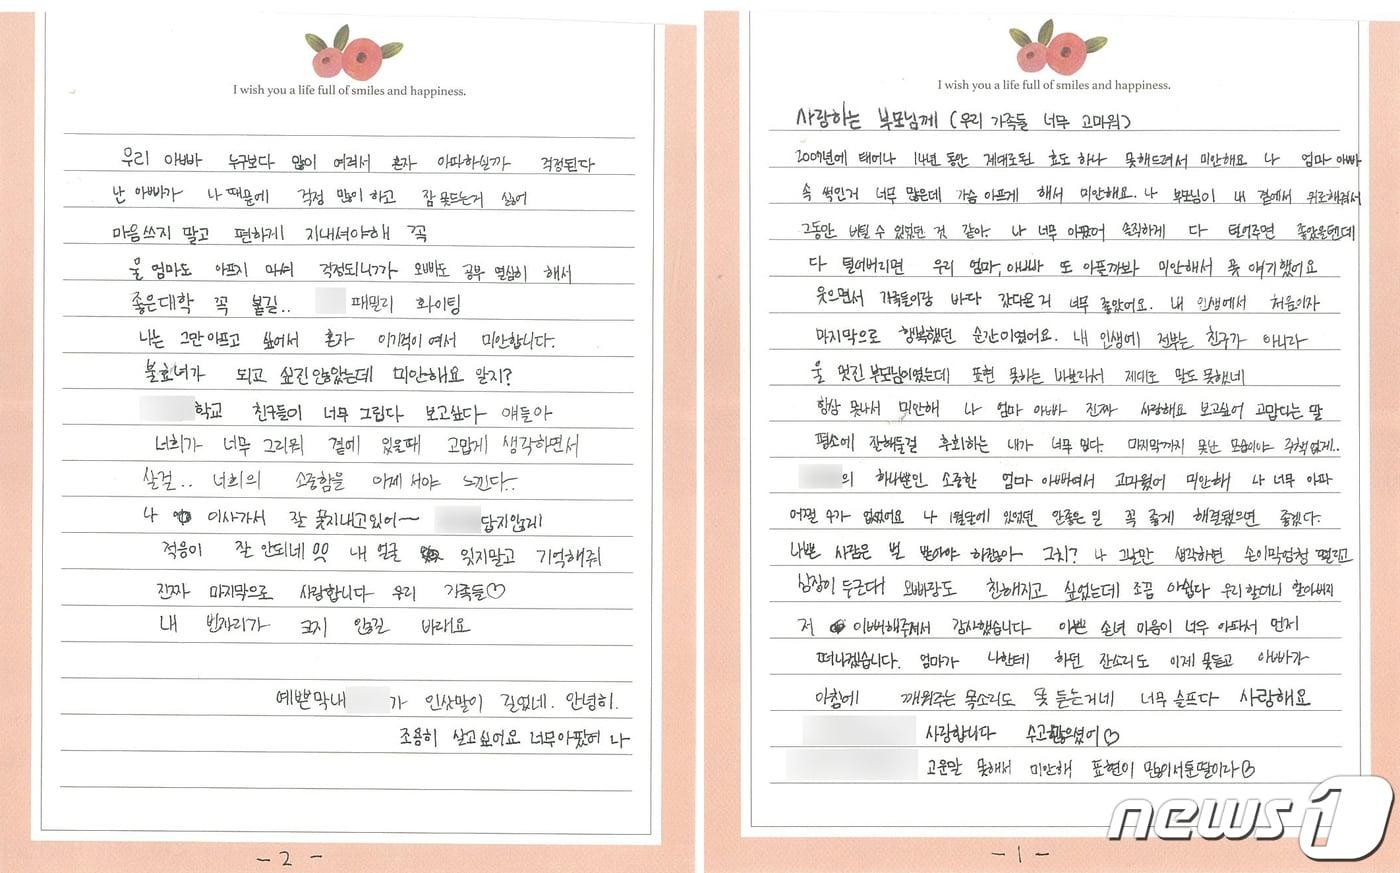 I wish you a life full of smiles and happiness.
사랑하는 부모님께 (우리 가족들 너무 고마워)
2007년에 태어나 14년 동안 제대로된 효도 하나 못해드려서 미안해요 나 엄마 아빠
속 썩인거 너무 많은데 가슴 아프게 해서 미안해요. 나 부모님이 내 곁에서 위로해줘서
그동안 버틸 수 있었던 것 같아. 나 너무 아팠어 솔직하게 다 털어주면 좋았을텐데
다 털어버리면 우리 엄마, 아빠 또 아플까봐 미안해서 못 얘기했어요
웃으면서 가족들이랑 바다 갔다온거 너무 좋았어요. 내 인생에서 처음이자
마지막으로 행복했던 순간이였어요. 내 인생에 전부는 친구가 아니라
울 멋진 부모님이였는데 표현 못하는 바보라서 제대로 말도 못했네
항상 못나서 미안해 나 엄마 아빠 진짜 사랑해요 보고싶어 고맙다는 말
평소에 잔뜩해둘걸 후회하는 내가 너무 밉다. 마지막까지 못난 모습이야 주책없게..
의 하나뿐인 소중한 엄마 아빠여서 고마웠어 미안해 나 너무 아파
어쩔 수가 없었어요 나 1월달에 있었던 안좋은 일 꼭 좋게 해결됐으면 좋겠다.
나쁜 사람은 벌 받아야 하잖아 그치? 나 그날만 생각하면 손이막엄청 떨리고
심장이 두근대 오빠랑도 친해지고 싶었는데 조끔 아쉽다 우리 할머니 할아버지
저 이뻐해주셔서 감사했습니다 이쁜 손녀 마음이 너무 아파서 먼저
떠나겠습니다. 엄마가 나한테 하던 잔소리도 이제 못듣고 아빠가
아침에 깨워주는 목소리도 못 듣는거네 너무 슬프다 사랑해요
사랑합니다 수고많으셨어♡
고운말 못해서 미안해 표현이 많이서툰딸이라♡
- 1 -
I wish you a life full of smiles and happiness.
우리 아빠 누구보다 많이 여려서 혼자 아파하실까 걱정된다
난 아빠가 나 때문에 걱정 많이 하고 잠 못드는거 싫어
마음쓰지 말고 편하게 지내셔야해 꼭
울 엄마도 아프지 마셔 걱정되니까 오빠도 공부 열심히 해서
좋은대학 꼭 붙길.. 패밀리 화이팅
나는 그만 아프고 싶어서 혼자 이기적이여서 미안합니다.
불효녀가 되고 싶진 않았는데 미안해요 알지?
학교 친구들이 너무 그립다 보고싶다 얘들아
너희가 너무 그리워 곁에 있을때 고맙게 생각하면서
살걸.. 너희의 소중함을 이제 서야 느낀다..
나 이사가서 잘 못지내고있어~ 답지않게
적응이 잘 안되네 내 얼굴 잊지말고 기억해줘
진짜 마지막으로 사랑합니다 우리 가족들♡
내 빈자리가 크지 않길 바래요
예쁜막내 가 인삿말이 길었네. 안녕히.
조용히 살고싶어요 너무아팠어 나
- 2 -
news1